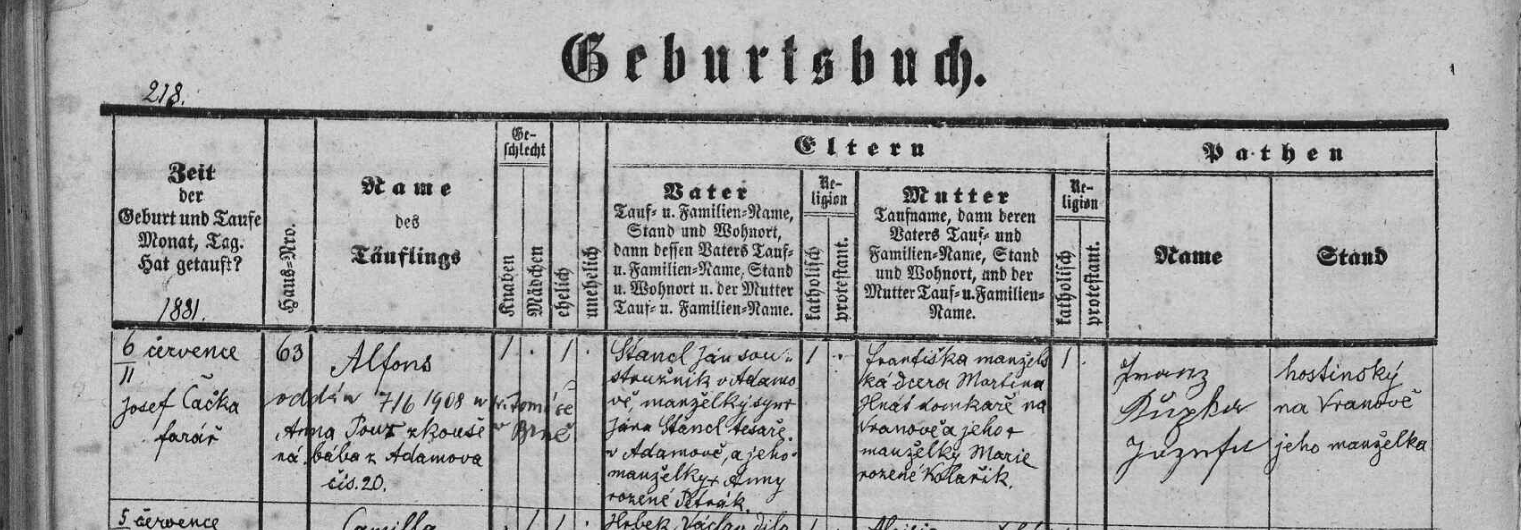 Geburtsbuch.
218.
Zeit
der
Geburt und Taufe
Monat, Tag.
Hat getauft?
1881.
Haus-Nro.
Name
des
Täuflings
Ge-
schlecht
Knaben
Mädchen
ehelich
unehelich
Eltern
Vater
Tauf- u. Familien-Name,
Stand und Wohnort,
dann dessen Vaters Tauf-
u. Familien-Name, Stand
u. Wohnort u. der Mutter
Tauf- u. Familien-Name.
Re-
ligion
katholisch
protestant.
Mutter
Taufname, dann deren
Vaters Tauf- und
Familien-Name, Stand
und Wohnort, und der
Mutter Tauf- u. Familien-
Name.
Re-
ligion
katholisch
protestant.
Pathen
Name
Stand
6 července
11
Josef Čačka
farář
63
Alfons
oddán 7/6 1908 u sv. Tomáše
v Brně
Anna
bába z Adamova
čís. 20.
1 . 1 .
Stancl Ján sou-
stružník v Adamo
vě, manželský syn
Jána Stancl tesaře
v Adamově, a jeho
manželky Anny
rozené Petrák.
1
Františka manžels
ká dcera Martina
Hnát domkaře na
Vranově a jeho
manželky Marie
rozené Kolařík.
1 .
Franz
Kupka
Jozefa
hostinský
na Vranově
jeho manželka
5 července
Camilla
1 1 .
Hrbek Václav
1
Aloisie
1